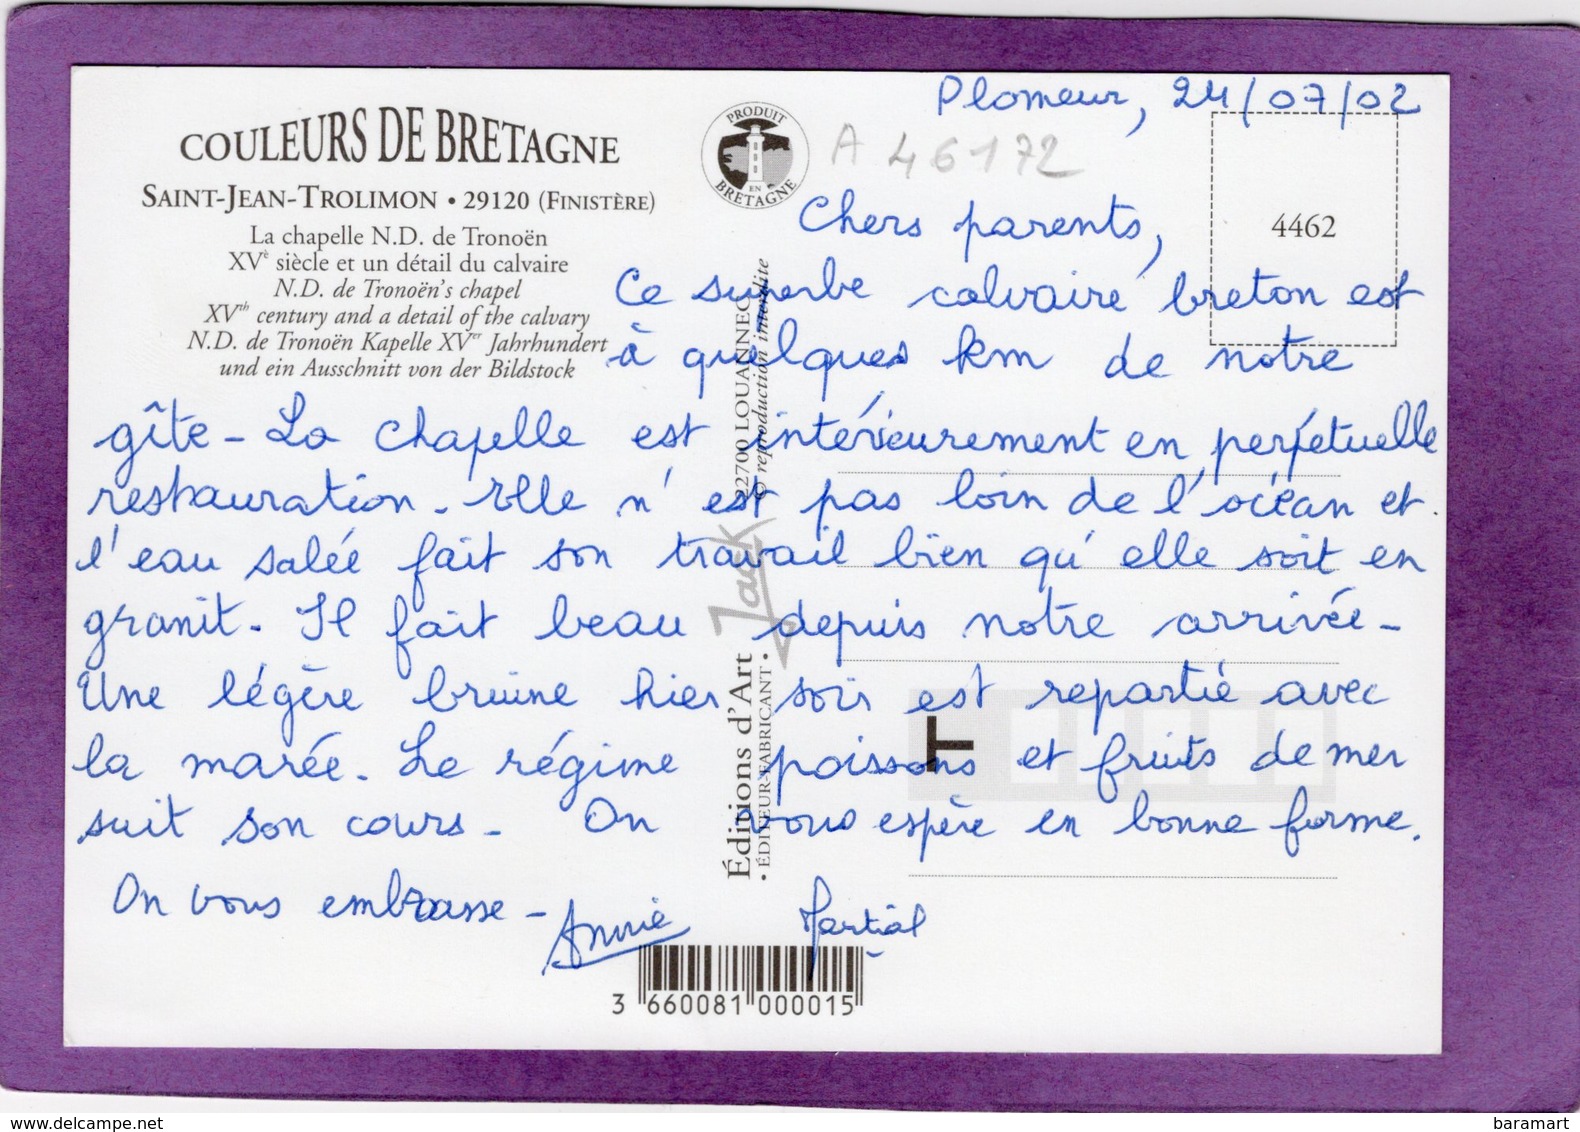 Plomeur, 24/07/02
COULEURS DE BRETAGNE
SAINT-JEAN-TROLIMON • 29120 (FINISTÈRE)
La chapelle N.D. de Tronoën
XVè siècle et un détail du calvaire
N.D. de Tronoën's chapel
XVth century and a detail of the calvary
N.D. de Tronoën Kapelle XVer Jahrhundert
und ein Ausschnitt von der Bildstock
PRODUIT EN BRETAGNE
A 46172
4462
Chers parents,
Ce superbe calvaire breton est
à quelques km de notre
gîte - La chapelle est intérieurement en perpétuelle
restauration. Elle n'est pas loin de l'océan et
l'eau salée fait son travail bien qu'elle soit en
granit. Il fait beau depuis notre arrivée -
Une légère bruine hier soir est repartie avec
la marée. Le régime poissons et fruits de mer
suit son cours - On vous espère en bonne forme.
On vous embrasse -
Annie Martial
Éditions d'Art Jack 22700 LOUANNEC
• ÉDITEUR-FABRICANT • © reproduction interdite
T
3 660081 000015
delcampe.net
baramart